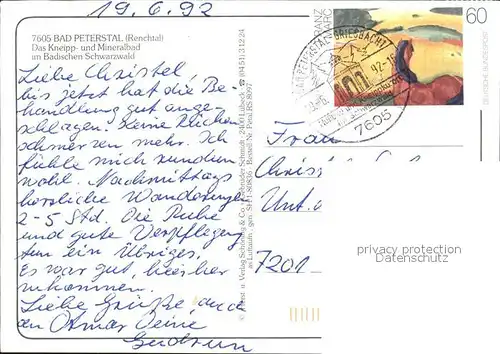 19.6.92
7605 BAD PETERSTAL (Renchtal)
Das Kneipp- und Mineralbad
im Badischen Schwarzwald
Liebe Christel,
bis jetzt hat die Be-
handlung gut ange-
schlagen. Keine Rücken
schmerzen mehr. Ich
fühle mich rundum
wohl. Nachmittags
herrliche Wanderungen
2-5 Std. Die Ruhe
und gute Verpflegung
tun ein Übriges.
Es war gut, hierher
zu kommen.
Liebe Grüße, auch
an Otmar Deine
Gudrun
FRANZ
MARC
60
DEUTSCHE BUNDESPOST
BAD PETERSTAL-GRIESBACH 1
7605
Frau
Chris
Unt.
7201
privacy protection
Datenschutz